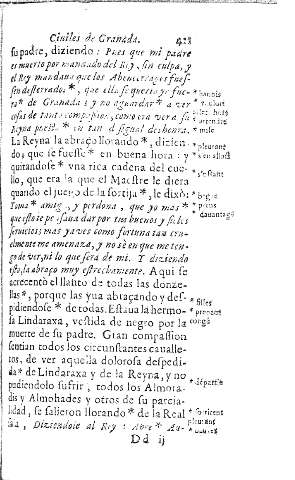 Ciuiles de Granada. 421
su padre, diziendo: Pues que mi padre
es muerto por mandado del Rey, sin culpa, y
el Rey mandaua que los Abencerrages fues-
sen desterrados*, que ella se queria yr fue-
ra* de Granada: y no aguardar* a ver
cosas de tanta compassion, como era vera su
Reyna puesta* en tan desigual deshonra.
La Reyna la abraço llorando*, dizien-
do, que se fuesse* en buena hora: y
quitandose* vna rica cadena del cue-
llo, que era la que el Maestre le diera
quando el juego de la sortija*, le dixo:
Toma* amiga, y perdona, que yo mas*
que esto te pensaua dar por tus buenos y fieles
seruicios; mas ya ves como fortuna tan cru-
elmente me amenaza, y no sè en que me ten-
go de ver, ni lo que serà de mi. Y diziendo
esto, la abraço muy estrechamente. Aqui se
acrecentò el llanto de todas las donze-
llas*, porque las yua abraçando y des-
pidiendose* de todas. Estaua la hermo-
sa Lindaraxa, vestida de negro por la
muerte de su padre. Gran compassion
sentian todos los circunstantes caualle-
ros, de ver aquella dolorosa despedi-
da* de Lindaraxa y de la Reyna, y no
pudiendolo sufrir, todos los Almora-
dis y Almohades y otros de su parcia-
lidad, se salieron llorando* de la Real
sala, Diziendole al Rey: Abre* Au-
Dd ij
* bannis
* dehors
* mise
* pleurant
* s'en allast
* s'ostant
* bague
* prens
dauantage
* filles
* prenant
congé
* départie
* sortirent
pleurans
* ouures